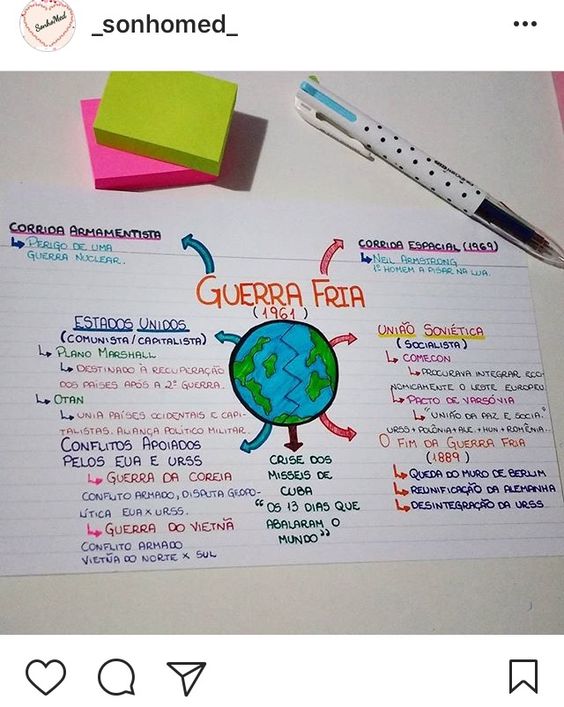 SonhoMed
_sonhomed_
CORRIDA ARMAMENTISTA
PERIGO DE UMA
GUERRA NUCLEAR.
CORRIDA ESPACIAL (1969)
NEIL ARMSTRONG
1º HOMEM A PISAR NA LUA.
GUERRA FRIA
(1961)
ESTADOS UNIDOS
(COMUNISTA/CAPITALISTA)
PLANO MARSHALL
DESTINADO À RECUPERAÇÃO
DOS PAÍSES APÓS A 2ª GUERRA.
OTAN
UNIA PAÍSES OCIDENTAIS E CAPI-
TALISTAS. ALIANÇA POLÍTICO MILITAR.
CONFLITOS APOIADOS
PELOS EUA E URSS
GUERRA DA COREIA
CONFLITO ARMADO, DISPUTA GEOPO-
LÍTICA EUA X URSS.
GUERRA DO VIETNÃ
CONFLITO ARMADO
VIETNÃ DO NORTE X SUL
CRISE DOS
MISSEIS DE
CUBA
"OS 13 DIAS QUE
ABALARAM O
MUNDO"
UNIÃO SOVIÉTICA
(SOCIALISTA)
COMECON
PROCURAVA INTEGRAR ECO-
NOMICAMENTE O LESTE EUROPEU
PACTO DE VARSÓVIA
"UNIÃO DA PAZ E SOCIA."
URSS + POLÔNIA + ALE. + HUN + ROMÊNIA..
O FIM DA GUERRA FRIA
(1889)
QUEDA DO MURO DE BERLIM
REUNIFICAÇÃO DA ALEMANHA
DESINTEGRAÇÃO DA URSS